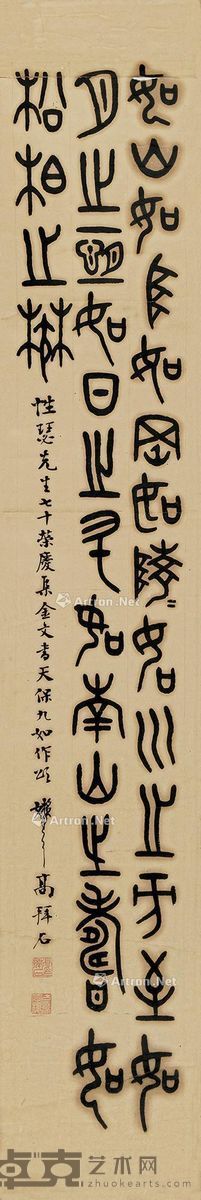 如山如阜如岡如陵如川之方至如
月之恆如日之升如南山之壽如
松柏之楙
性瑟先生七十榮慶集金文書天保九如作頌 嬾云 高拜石
Artron.Net
卓克艺术网
zhuokearts.com